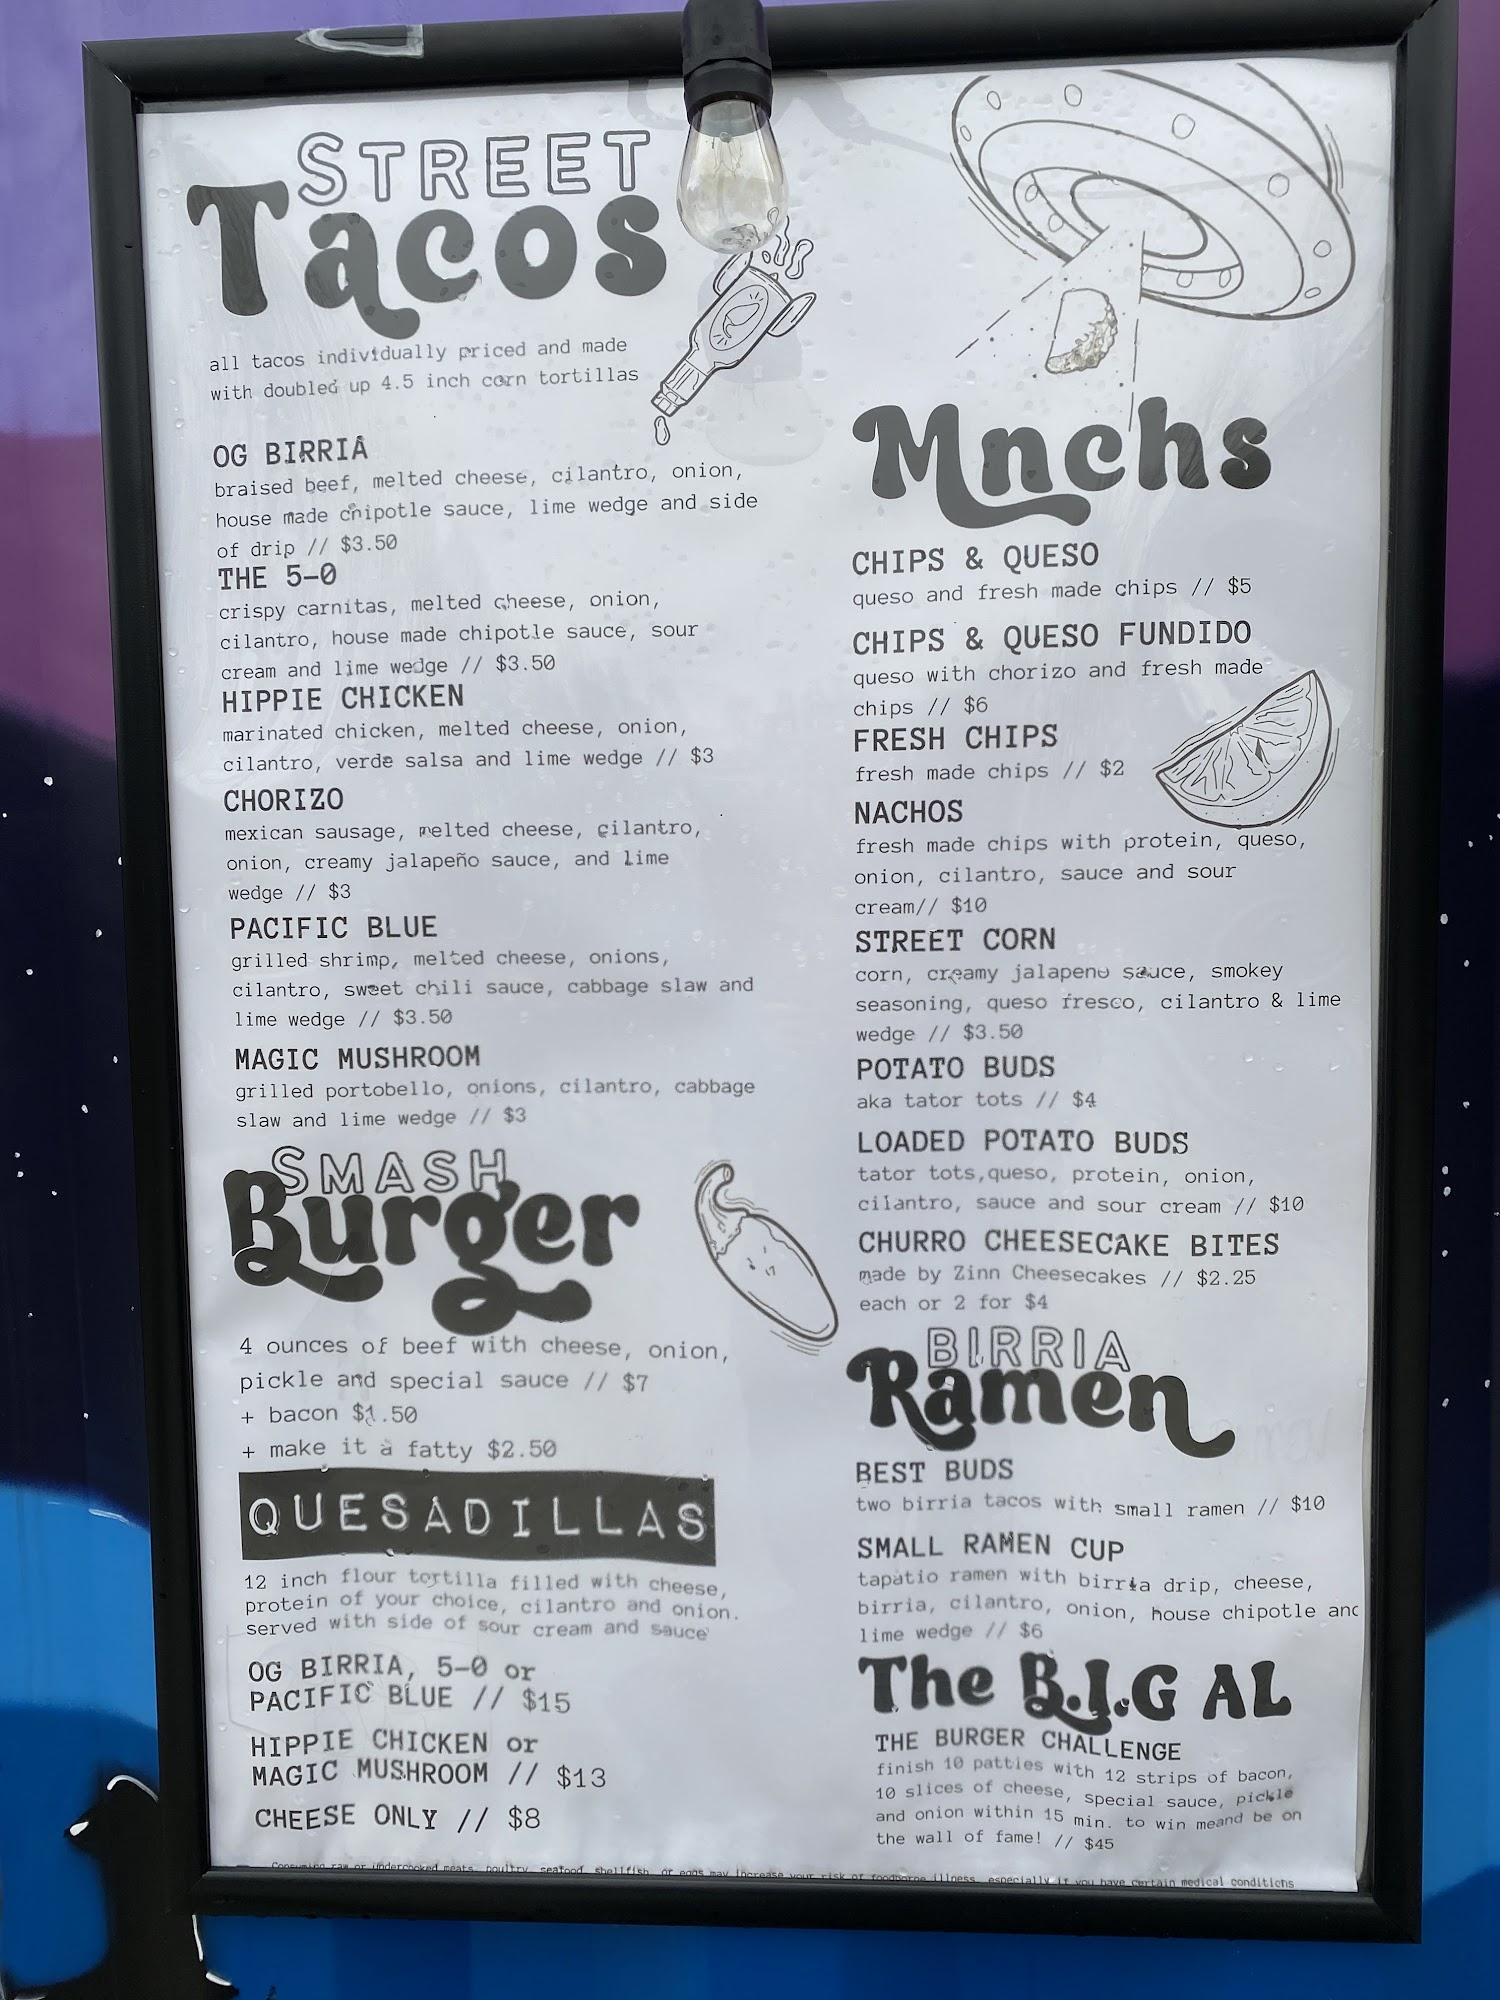 STREET
Tacos
all tacos individually priced and made
with doubled up 4.5 inch corn tortillas
OG BIRRIA
braised beef, melted cheese, cilantro, onion,
house made chipotle sauce, lime wedge and side
of drip // $3.50
THE 5-0
crispy carnitas, melted cheese, onion,
cilantro, house made chipotle sauce, sour
cream and lime wedge // $3.50
HIPPIE CHICKEN
marinated chicken, melted cheese, onion,
cilantro, verde salsa and lime wedge // $3
CHORIZO
mexican sausage, melted cheese, cilantro,
onion, creamy jalapeño sauce, and lime
wedge // $3
PACIFIC BLUE
grilled shrimp, melted cheese, onions,
cilantro, sweet chili sauce, cabbage slaw and
lime wedge // $3.50
MAGIC MUSHROOM
grilled portobello, onions, cilantro, cabbage
slaw and lime wedge // $3
SMASH
Burger
4 ounces of beef with cheese, onion,
pickle and special sauce // $7
+ bacon $1.50
+ make it a fatty $2.50
QUESADILLAS
12 inch flour tortilla filled with cheese,
protein of your choice, cilantro and onion.
served with side of sour cream and sauce
OG BIRRIA, 5-0 or
PACIFIC BLUE // $15
HIPPIE CHICKEN or
MAGIC MUSHROOM // $13
CHEESE ONLY // $8
Mnchs
CHIPS & QUESO
queso and fresh made chips // $5
CHIPS & QUESO FUNDIDO
queso with chorizo and fresh made
chips // $6
FRESH CHIPS
fresh made chips // $2
NACHOS
fresh made chips with protein, queso,
onion, cilantro, sauce and sour
cream// $10
STREET CORN
corn, creamy jalapeno sauce, smokey
seasoning, queso fresco, cilantro & lime
wedge // $3.50
POTATO BUDS
aka tator tots // $4
LOADED POTATO BUDS
tator tots,queso, protein, onion,
cilantro, sauce and sour cream // $10
CHURRO CHEESECAKE BITES
made by Zinn Cheesecakes // $2.25
each or 2 for $4
BIRRIA
Ramen
BEST BUDS
two birria tacos with small ramen // $10
SMALL RAMEN CUP
tapatio ramen with birria drip, cheese,
birria, cilantro, onion, house chipotle and
lime wedge // $6
The B.I.G AL
THE BURGER CHALLENGE
finish 10 patties with 12 strips of bacon,
10 slices of cheese, special sauce, pickle
and onion within 15 min. to win meand be on
the wall of fame! // $45
Consuming raw or undercooked meats, poultry, seafood, shellfish, or eggs may increase your risk of foodborne illness, especially if you have certain medical conditions